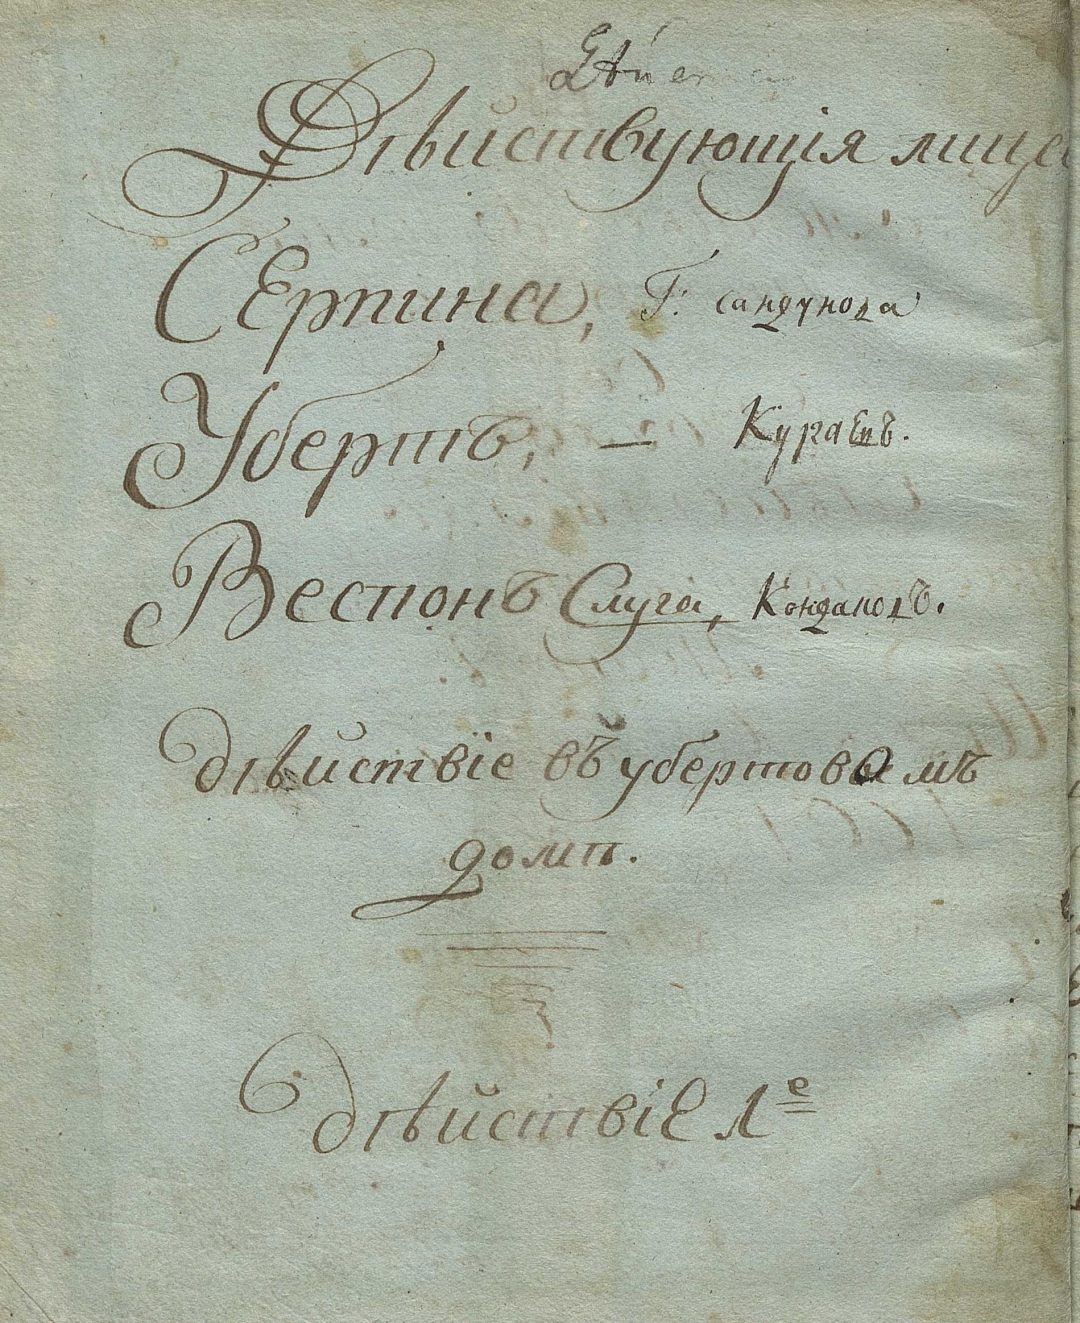 Дѣйствующія лица
Серпина, Г: сандунова
Убертъ, — Кураевъ.
Веспонъ Слуга, Кондаковъ.
дѣйствіе въ убертовомъ
домѣ.
дѣйствіе 1е